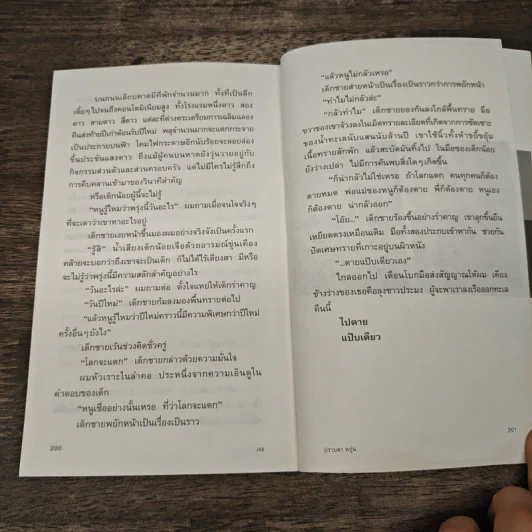 บนถนนเลียบหาดมีที่พักจำนวนมาก ทั้งที่เป็นตึก
เตี้ยๆ ไปจนถึงคอนโดมิเนียมสูง ทั้งโรงแรมหนึ่งดาว สอง
ดาว สามดาว สี่ดาว แต่ละที่ต่างตระเตรียมการเฉลิมฉลอง
คืนส่งท้ายปีเก่าต้อนรับปีใหม่ พลุจำนวนมากจะแตกกระจาย
เป็นประกายบนฟ้า โคมไฟกระดาษอีกนับร้อยจะลอยล่อง
ขึ้นประชันแสงดาว ถึงแม้ผู้คนบนหาดยังวุ่นวายอยู่กับ
กิจกรรมส่วนตัวและส่วนครอบครัว แต่ไม่มีใครไม่รู้สึกถึง
การคืบคลานเข้ามาของวินาทีสำคัญ
หรือเด็กน้อยผู้นี้จะไม่รู้
“หนูรู้ไหมว่าพรุ่งนี้วันอะไร” ผมถามเมื่อจนใจจริงๆ
ที่จะเดาว่าเขาหาอะไรอยู่
เด็กชายเงยหน้าขึ้นมองผมอย่างจริงจังเป็นครั้งแรก
“รู้สิ” น้ำเสียงเด็กน้อยเจือด้วยอารมณ์ขุ่นเคือง
คล้ายจะบอกว่าถึงเขาจะเป็นเด็ก ก็ไม่ได้ไร้เดียงสา มีหรือ
จะไม่รู้ว่าพรุ่งนี้มีความสลักสำคัญอย่างไร
“วันอะไรล่ะ” ผมถามต่อ ตั้งใจแหย่ให้เด็กรำคาญ
“วันปีใหม่” เด็กชายก้มลงมองพื้นทรายต่อไป
“แล้วหนูรู้ไหมว่าปีใหม่คราวนี้มีความพิเศษกว่าปีใหม่
ครั้งอื่นๆ ยังไง”
เด็กชายเว้นช่วงคิดชั่วครู่
“โลกจะแตก” เด็กชายกล่าวด้วยความมั่นใจ
ผมหัวเราะในลำคอ ประหนึ่งจากความเอ็นดูใน
คำตอบของเด็ก
“หนูเชื่ออย่างนั้นเหรอ ที่ว่าโลกจะแตก”
เด็กชายพยักหน้าเป็นเรื่องเป็นราว
200
เขง
“แล้วหนูไม่กลัวเหรอ”
เด็กชายส่ายหน้าเป็นเรื่องเป็นราวกว่าการพยักหน้า
“ทำไมไม่กลัวล่ะ”
“กลัวทำไม” เด็กชายยองก้นลงใกล้พื้นทราย มือ
ขวาของเขาจ้วงลงในเม็ดทรายละเอียดที่เกิดจากการซัดเซาะ
ของน้ำทะเลนับแสนนับล้านปี เขาใช้นิ้วทั้งห้าขยี้ขยุ้ม
เนื้อทรายสักพัก แล้วสะบัดมันทิ้งไป ในมือของเด็กน้อย
ยังว่างเปล่า ไม่มีการค้นพบสิ่งใดๆ เกิดขึ้น
“ก็น่ากลัวไม่ใช่เหรอ ถ้าโลกแตก คนทุกคนก็ต้อง
ตายหมด พ่อแม่ของหนูก็ต้องตาย พี่ก็ต้องตาย หนูเอง
ก็ต้องตาย น่ากลัวออก”
“โอ๊ย...” เด็กชายร้องขึ้นอย่างรำคาญ เขาลุกขึ้นยืน
เหยียดตรงเหมือนเดิม มือทั้งสองประกบเข้าหากัน ช่วยกัน
ปัดเศษทรายที่เกาะอยู่บนผิวหนัง
“...ตายแป๊บเดียวเอง”
ไกลออกไป เดือนโบกมือส่งสัญญาณให้ผม เคียง
ข้างร่างของเธอคือลุงชาวประมง ผู้จะพาเราลงเรือออกทะเล
คืนนี้
ไปตาย
แป๊บเดียว
201
ปราบดา หยุ่น